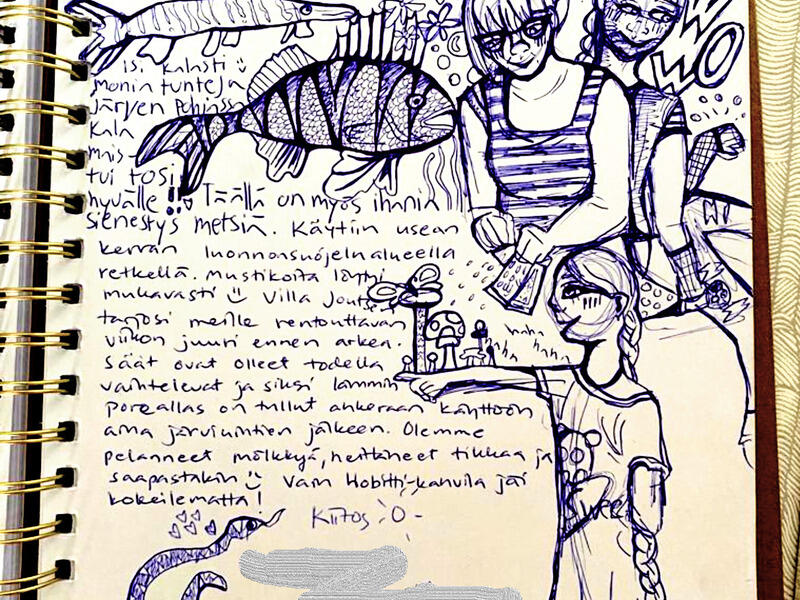 isi kalasti
monia tunteja
järven pohjassa
kala
mais-
tui tosi
hyvälle !! Täällä on myös ihania
sienestys metsiä. Käytiin usean
kerran luonnonsuojelualueella
retkellä. Mustikoita löytyi
mukavasti Villa Joutsen
tarjosi meille rentouttavan
viikon juuri ennen arkea.
Säät ovat olleet todella
vaihtelevat ja siksi lämmin
poreallas on tullut ankeraan käyttöön
aina järviuintien jälkeen. Olemme
pelanneet mölkkyä, heittäneet tikkaa ja
saapastakin Vain Hobitti-kahvila jäi
kokeilematta!
Kiitos
WOW
WO
haha
haha
haha
Sweet